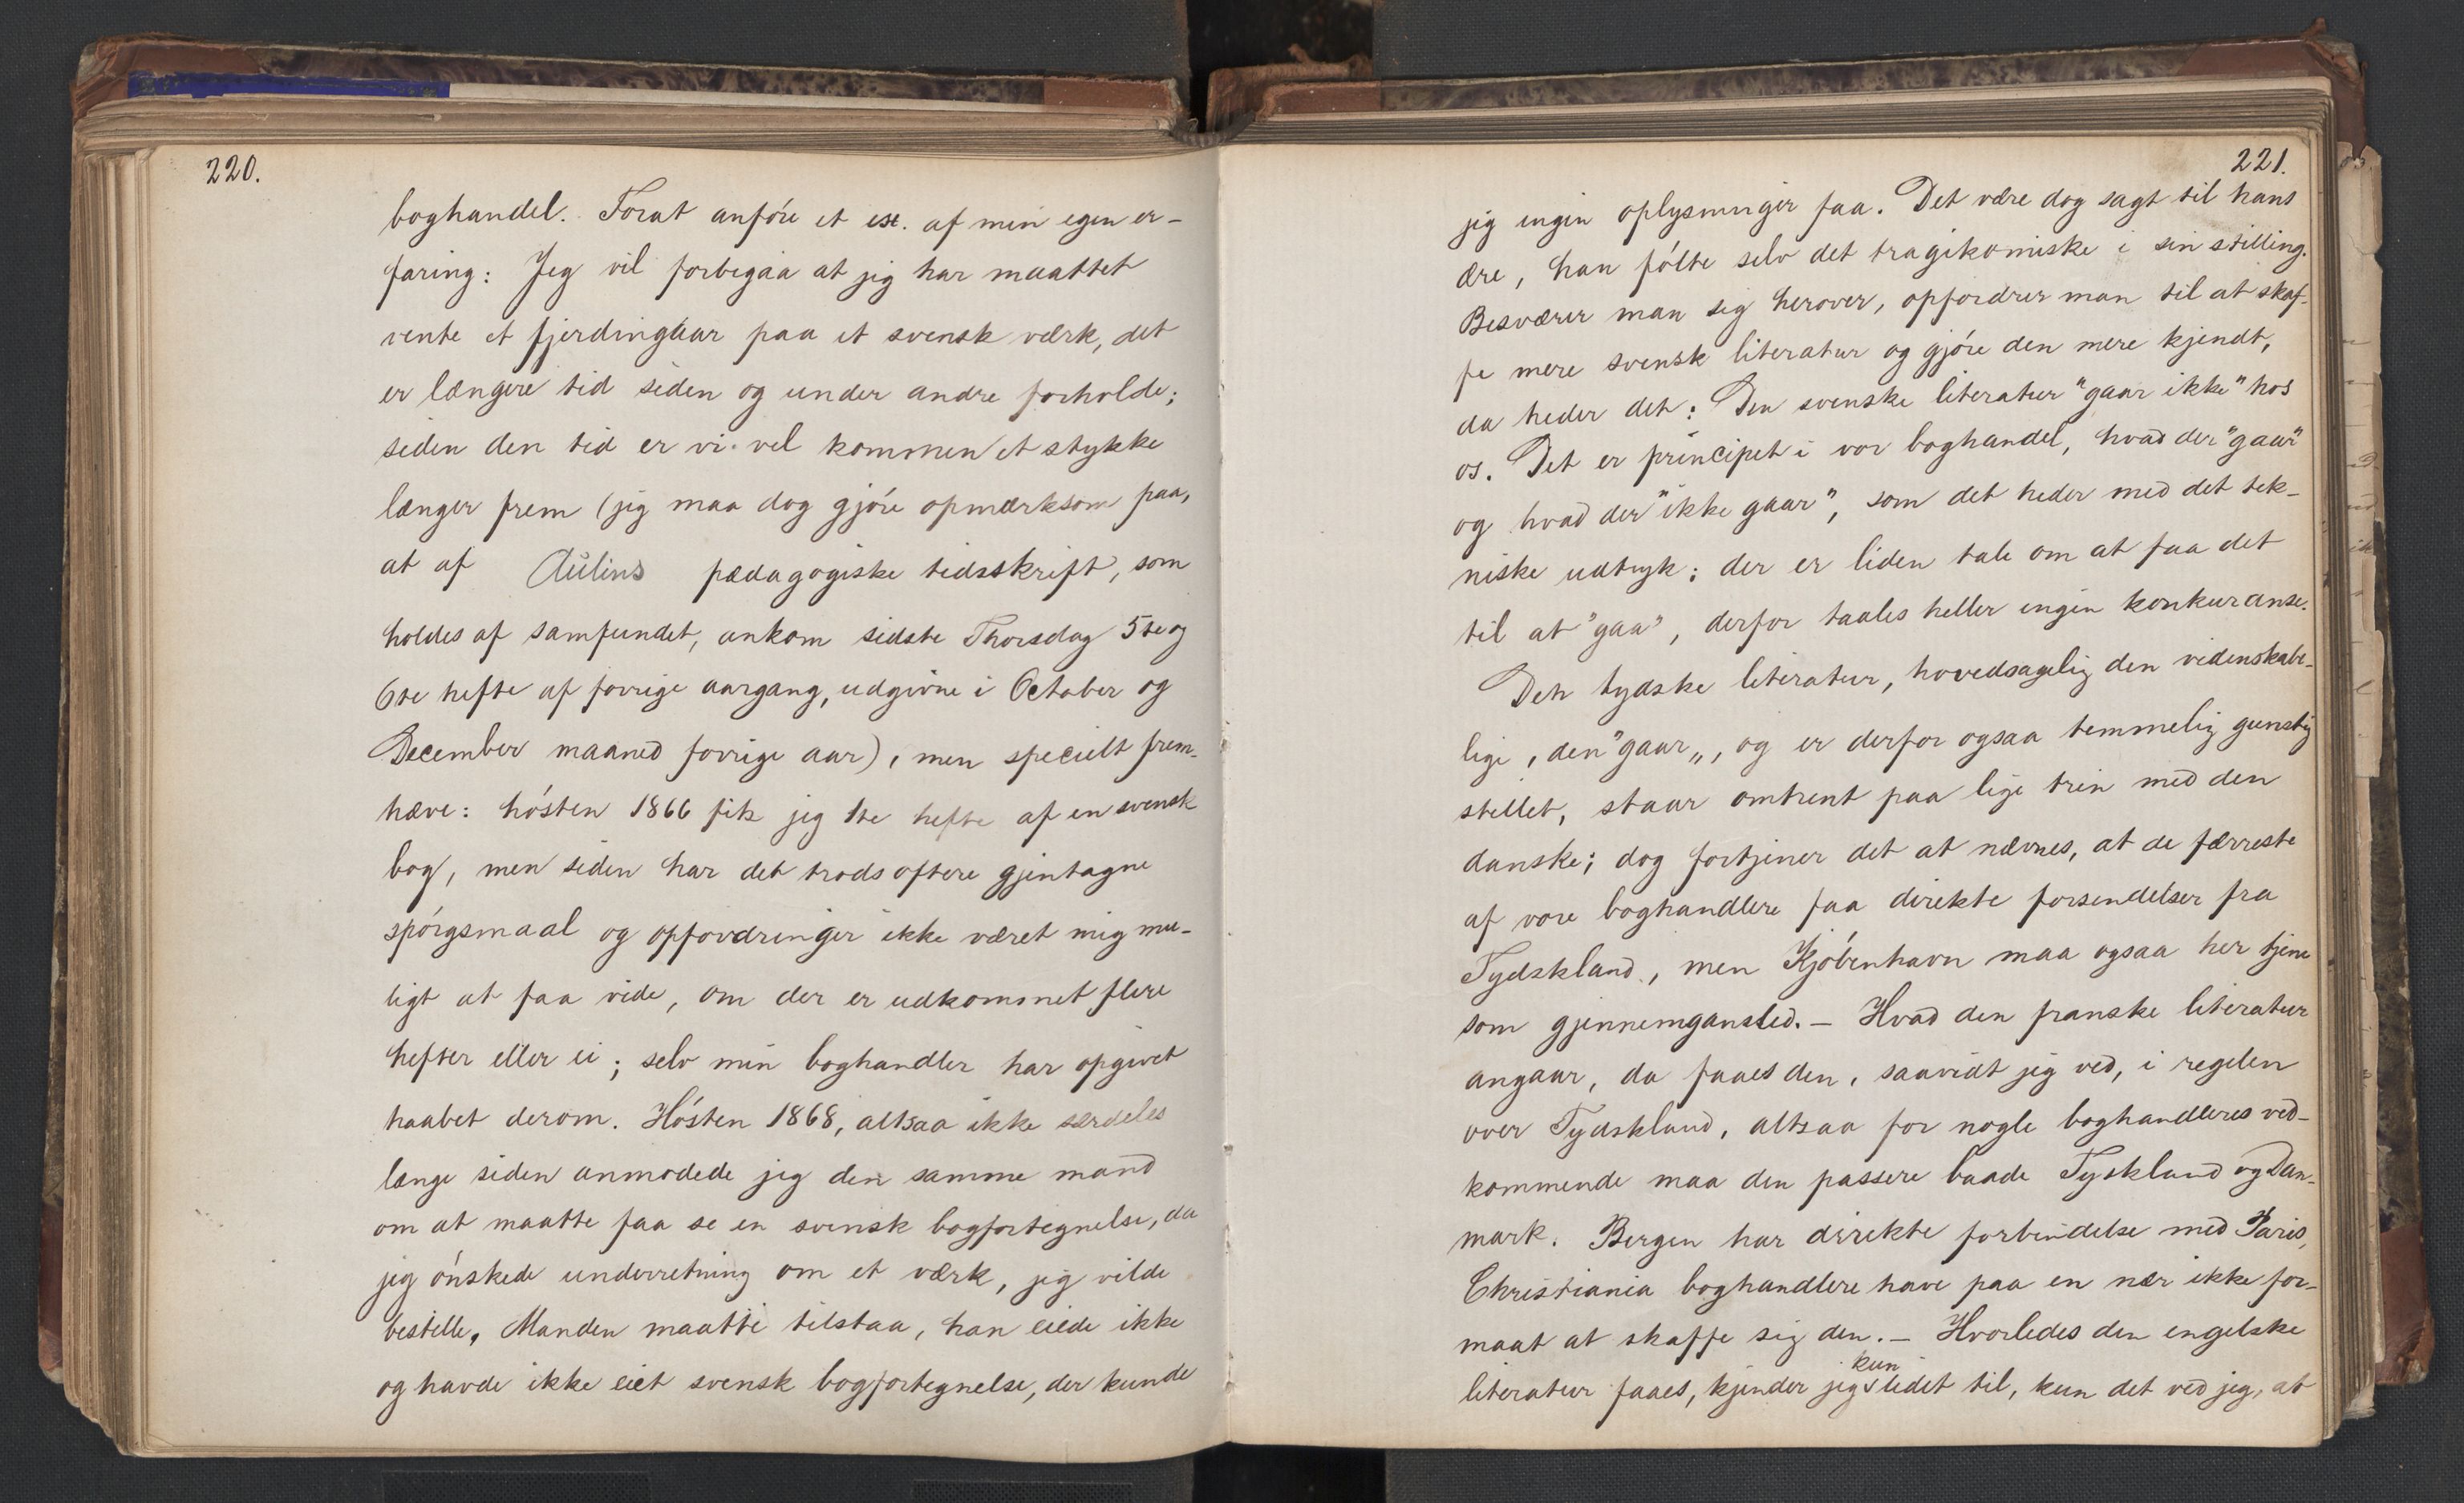 220.
boghandel. Forat anføre et ex. af min egen er-
faring: Jeg vil forbigaa at jeg har maattet
vente et fjerdingaar paa et svensk værk, det
er længere tid siden og under andre forholde;
siden den tid er vi vel kommen et stykke
længer frem (jeg maa dog gjøre opmærksom paa,
at af Aulins pædagogiske tidsskrift, som
holdes af samfundet, ankom sidste Thorsdag 5te og
6te hefte af forrige aargang, udgivne i October og
December maaned forrige aar), men specielt frem-
hæve: høsten 1866 fik jeg 1te hefte af en svensk
bog, men siden har det trods oftere gjentagne
spørgsmaal og opfordringer ikke været mig mu-
ligt at faa vide, om der er udkommet flere
hefter eller ei; selv min boghandler har opgivet
haabet derom. Høsten 1868, altsaa ikke særdeles
længe siden anmodede jeg den samme mand
om at maatte faa se en svensk bogfortegnelse, da
jeg ønskede underretning om et værk, jeg vilde
bestille. Manden maatte tilstaa, han eiede ikke
og havde ikke eiet svensk bogfortegnelse, der kunde
221.
jeg ingen oplysninger faa. Det være dog sagt til hans
ære, han følte selv det tragikomiske i sin stilling.
Besværer man sig herover, opfordrer man til at skaf-
fe mere svensk literatur og gjøre den mere kjendt,
da heder det: Den svenske literatur "gaar ikke" hos
os. Det er principet i vor boghandel, hvad der "gaar"
og hvad der "ikke gaar", som det heder med det tek-
niske udtryk; der er liden tale om at faa det
til at "gaa", derfor taales heller ingen konkuranse.
Den tydske literatur, hovedsagelig den videnskabe-
lige, den "gaar„, og er derfor ogsaa temmelig gunstig
stillet, staar omtrent paa lige trin med den
danske; dog fortjener det at nævnes, at de færreste
af vore boghandlere faa direkte forsendelser fra
Tydskland, men Kjøbenhavn maa ogsaa her tjene
som gjennemgansted. – Hvad den franske literatur
angaar, da faaes den, saavidt jeg ved, i regelen
over Tydskland, altsaa for nogle boghandleres ved-
kommende maa den passere baade Tyskland og Dan-
mark. Bergen har direkte forbindelse med Paris,
Christiania boghandlere have paa en nær ikke for-
maat at skaffe sig den. – Hvorledes den engelske
literatur faaes, kjender jeg kun lidet til, kun det ved jeg, at